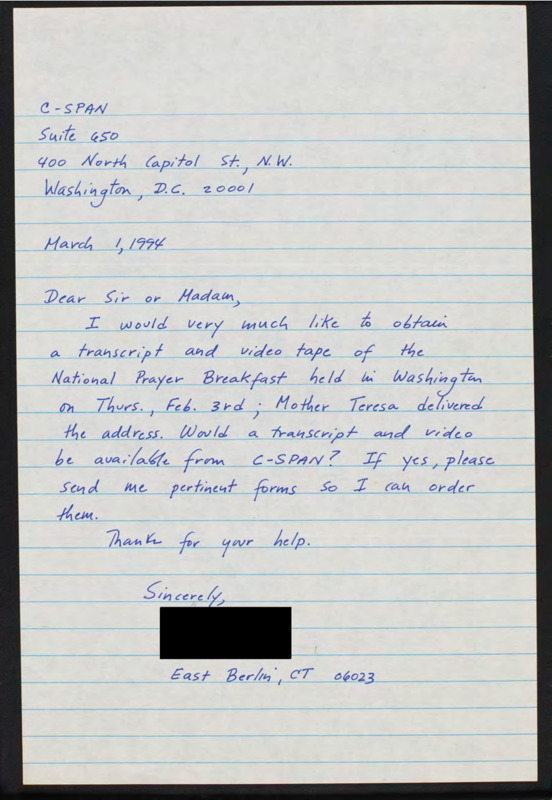 C-SPAN
Suite 650
400 North Capitol St., N.W.
Washington, D.C. 20001
March 1, 1994
Dear Sir or Madam,
I would very much like to obtain
a transcript and video tape of the
National Prayer Breakfast held in Washington
on Thurs., Feb. 3rd; Mother Teresa delivered
the address. Would a transcript and video
be available from C-SPAN? If yes, please
send me pertinent forms so I can order
them.
Thanks for your help.
Sincerely,
East Berlin, CT 06023